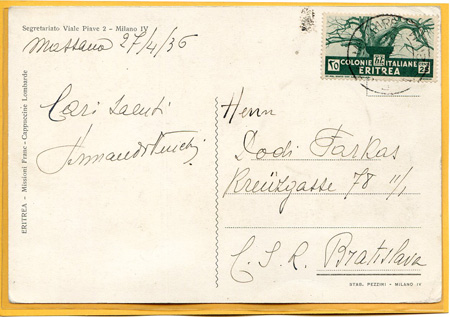 Segretariato Viale Piave 2 - Milano IV
Massaua 27/4/36
Cari saluti
COLONIE ITALIANE
ERITREA
25
ERITREA - Missioni Franc - Cappuccine Lombarde
Herrn
Dodi Farkas
Kreuzgasse 78 II/1
C. S. R. Bratislava
STAB. PEZZINI - MILANO IV